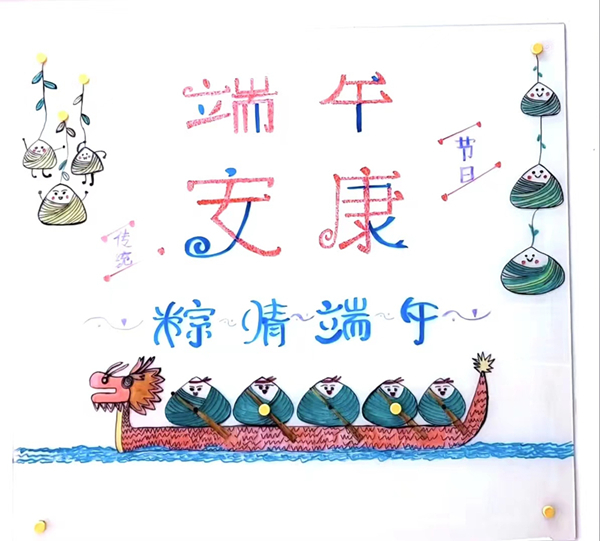 端午
节日
安康
传统
粽情端午